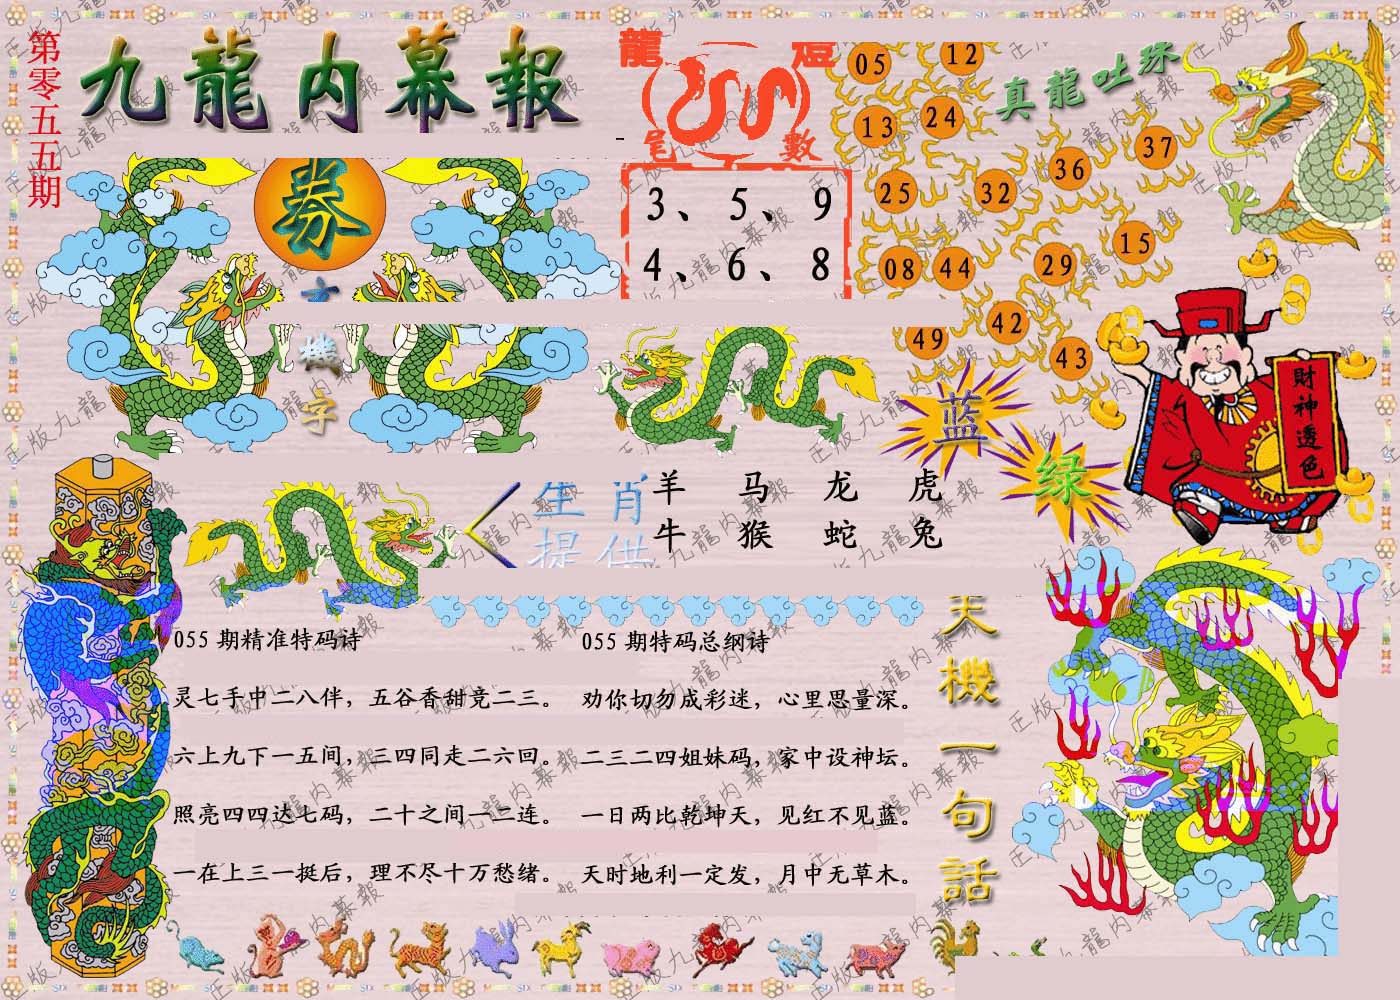 第零五五期
九龍内幕報
龍
尾數
3、5、9
4、6、8
真龍吐珠
05
12
13
24
37
36
25
32
15
08
44
29
49
42
43
券
機字
蓝
绿
財神透色
生肖
提供
羊 马 龙 虎
牛 猴 蛇 兔
055期精准特码诗
灵七手中二八伴，五谷香甜竞二三。
六上九下一五间，三四同走二六回。
照亮四四达七码，二十之间一二连。
一在上三一挺后，理不尽十万愁绪。
055期特码总纲诗
劝你切勿成彩迷，心里思量深。
二三二四姐妹码，家中设神坛。
一日两比乾坤天，见红不见蓝。
天时地利一定发，月中无草木。
天機一句話
正版九龍内幕報